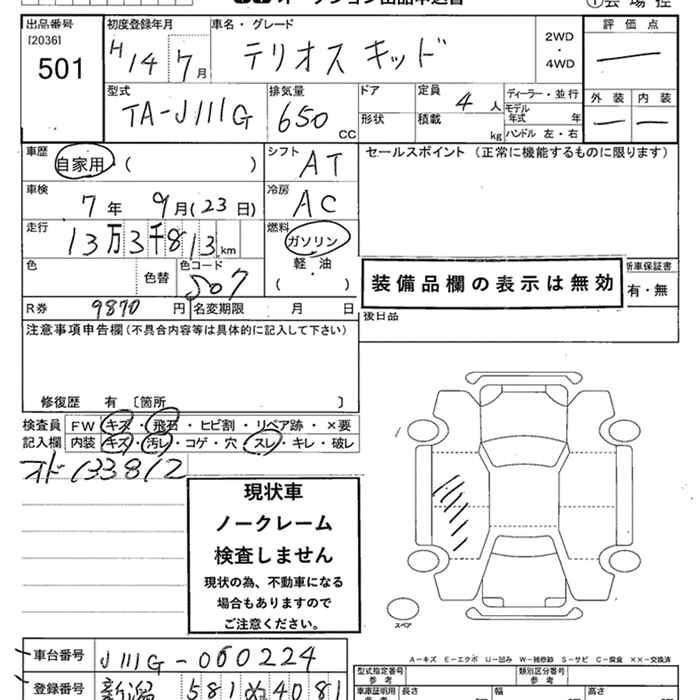 オークション出品申込書
①会場控
出品番号
[2036]
501
初度登録年月
H14 7月
車名・グレード
テリオスキッド
2WD
・
4WD
評価点
—
外装 内装
— —
型式
TA-J111G
排気量
650 CC
ドア
形状
定員
4人
積載 kg
ディーラー・並行
モデル年式 年
ハンドル 左・右
車歴
自家用 ( )
シフト
AT
セールスポイント (正常に機能するものに限ります)
車検
7年 9月(23日)
冷房
AC
走行
13万3千813km
燃料
ガソリン
軽・油
( )
色
色替
色コード
S07
装備品欄の表示は無効
新車保証書
有・無
R券 9870円
名変期限 月 日
後日品
注意事項申告欄(不具合内容等は具体的に記入して下さい)
修復歴 有 〔箇所 〕
検査員
記入欄
FW キズ・飛石・ヒビ割・リペア跡・×要
内装 キズ・汚レ・コゲ・穴・スレ・キレ・破レ
オド133812
現状車
ノークレーム
検査しません
現状の為、不動車になる
場合もありますので
ご注意ください。
スペア
A-キズ E-エクボ U-凹み W-補修跡 S-サビ C-腐食 XX-交換済
車台番号
J111G-060224
登録番号
新潟 581 ぬ 4081
型式指定番号
参考
類別区分番号
参考
車庫証明用
長さ
幅
高さ